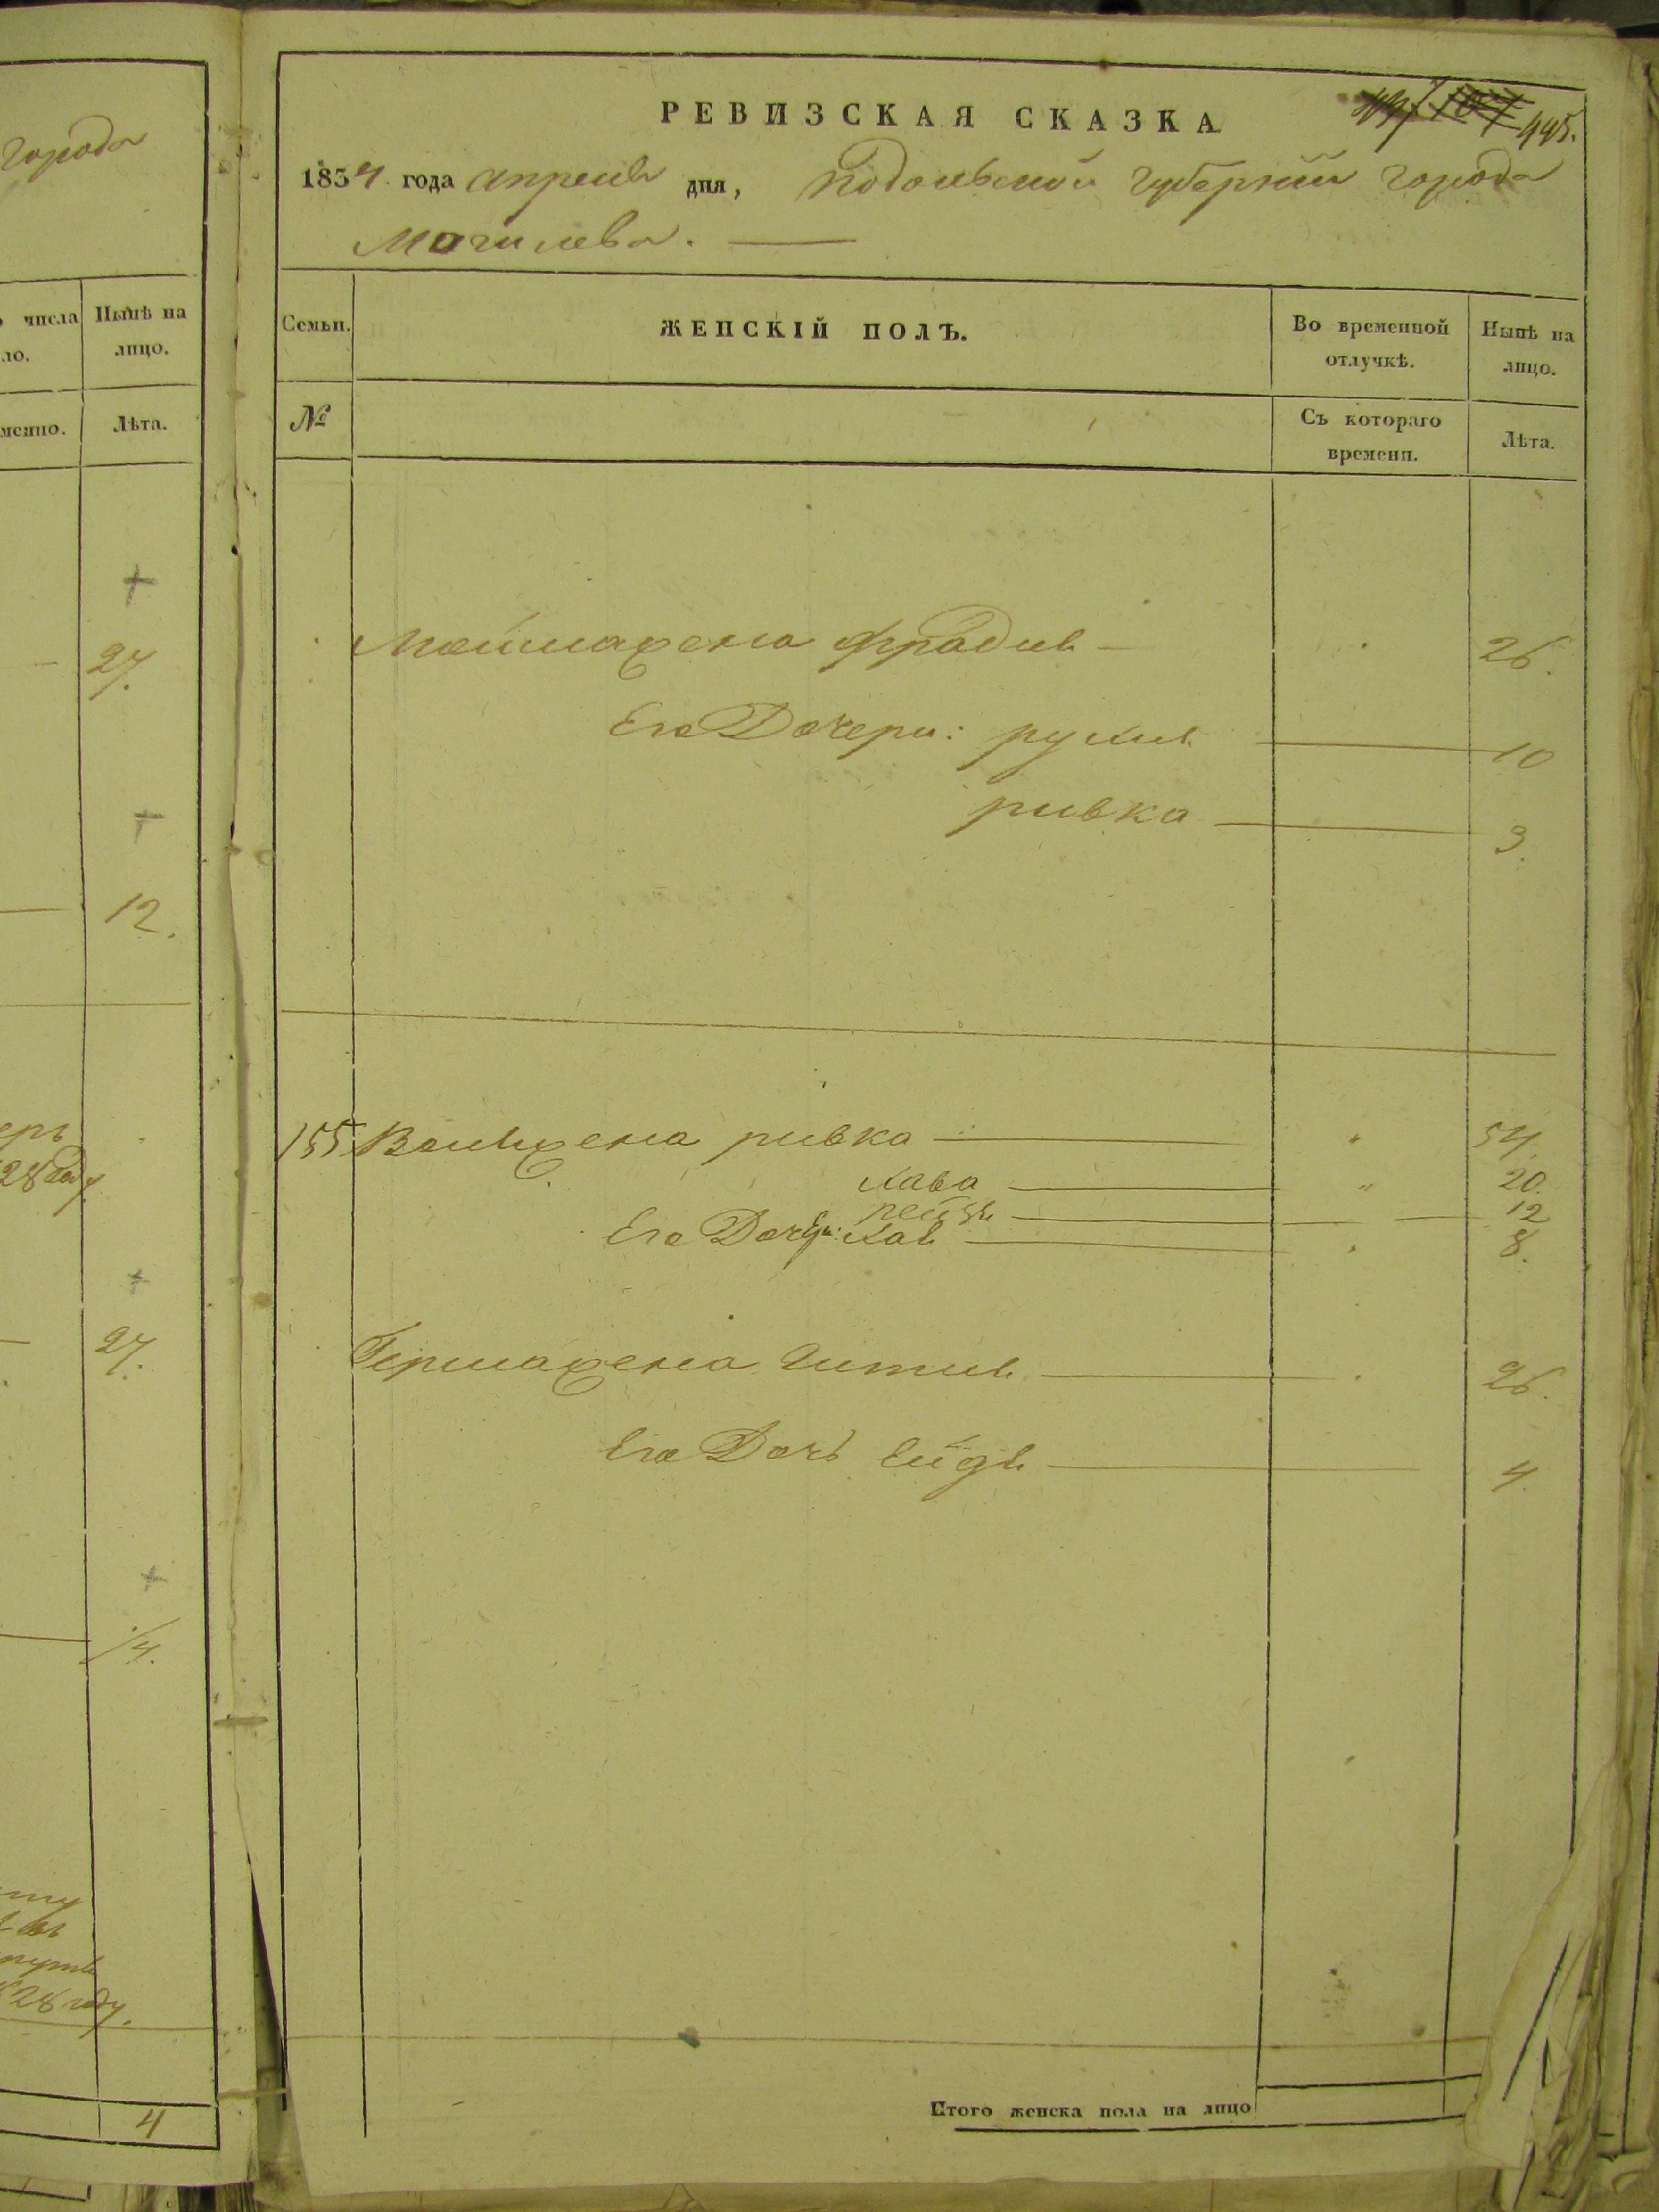 города
числа
Нынѣ на
ло.
лицо.
менно.
Лѣта.
27.
12.
ерь
28 году
27.
14.
28 году.
4
РЕВИЗСКАЯ СКАЗКА
445.
1834 года апреля дня, Подольской губернии города
Могилева.
Семьи.
ЖЕНСКІЙ ПОЛЪ.
Во временной
отлучкѣ.
Нынѣ на
лицо.
№
Съ котораго
времени.
Лѣта.
жена Фрадля 26.
Его Дочери: рухля 10
ривка 3.
155 жена ривка 54.
хава 20.
рейзя 12
Его Дочери: хая 8.
Гершка жена Гитля 26.
Его Дочь Ейдя 4
Итого женска пола на лицо